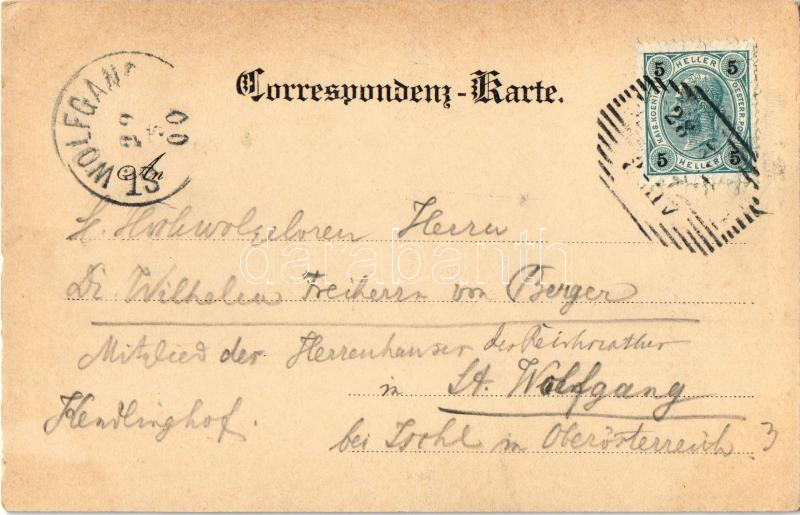 Correspondenz-Karte.
5 HELLER 5
KAIS. KOENIGL.
OESTERR. POST
5 HELLER 5
28
ST WOLFGANG
29 8 00
An
S. Hochwolgeboren Herrn
darabanth
Dr Wilhelm Freiherrn von Berger
Mitglied des Herrenhauses des Reichsrathes
in St. Wolfgang
Kendlinghof.
bei Ischl in Oberösterreich